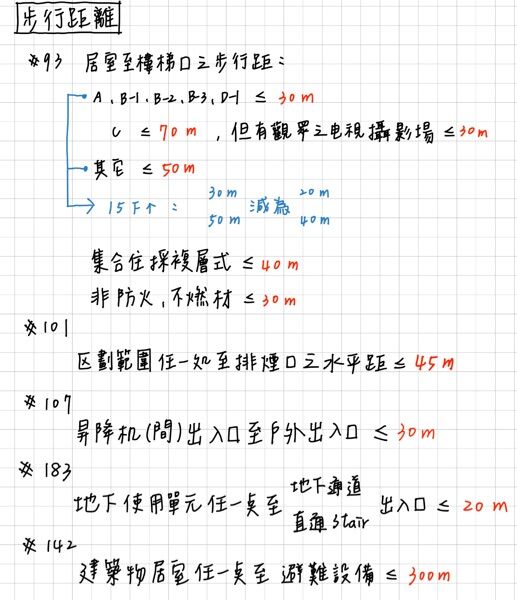 步行距離
※93 居室至樓梯口之步行距：
A、B-1、B-2、B-3、D-1 ≤ 30m
C ≤ 70m，但有觀眾之电視攝影場 ≤30m
其它 ≤ 50m
15F↑： 30m 減為 20m
50m 40m
集合住採複層式 ≤ 40m
非防火、不燃材 ≤ 30m
※101
区劃範圍任一処至排煙口之水平距 ≤ 45m
※107
昇降机(間)出入口至戶外出入口 ≤ 30m
※183
地下使用單元任一点至 地下通道 出入口 ≤ 20m
直通stair
※142
建築物居室任一点至 避難設備 ≤ 300m